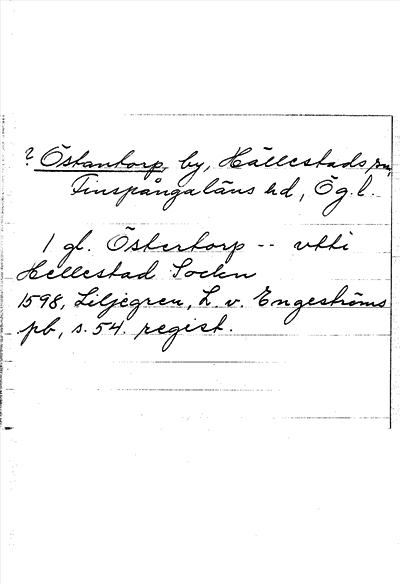 ? Östantorp, by, Hällestads sn,
Finspångaläns hd, Ög. l.
1 gl. Östertorp -- vtti
Hellestad Sochn
1598, Liljegren, L. v. Engeströms
pb, s. 54. regist.